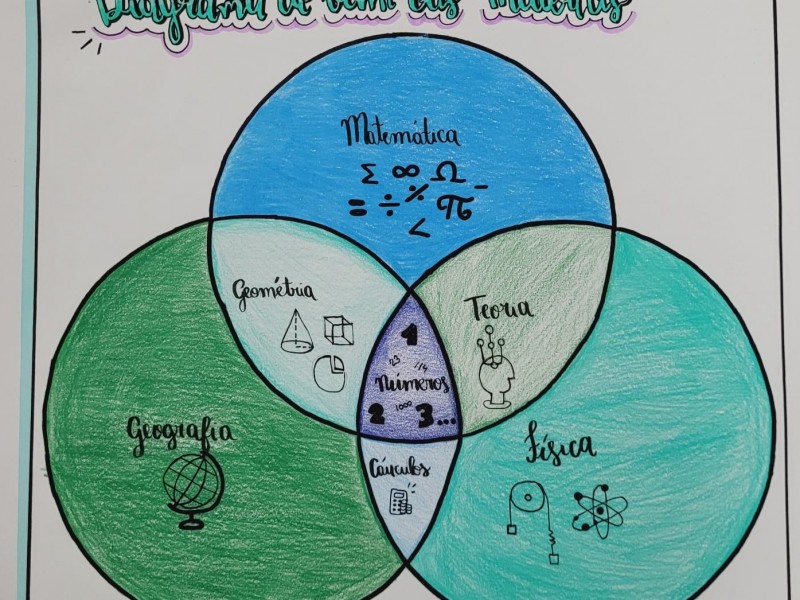 Diagrama de Venn das Matérias
Matemática
Σ ∞ Ω
= ÷ % π -
<
Geométria
Teoria
1
23 /14
Números
2 1000 3...
Geografia
Física
Cálculos